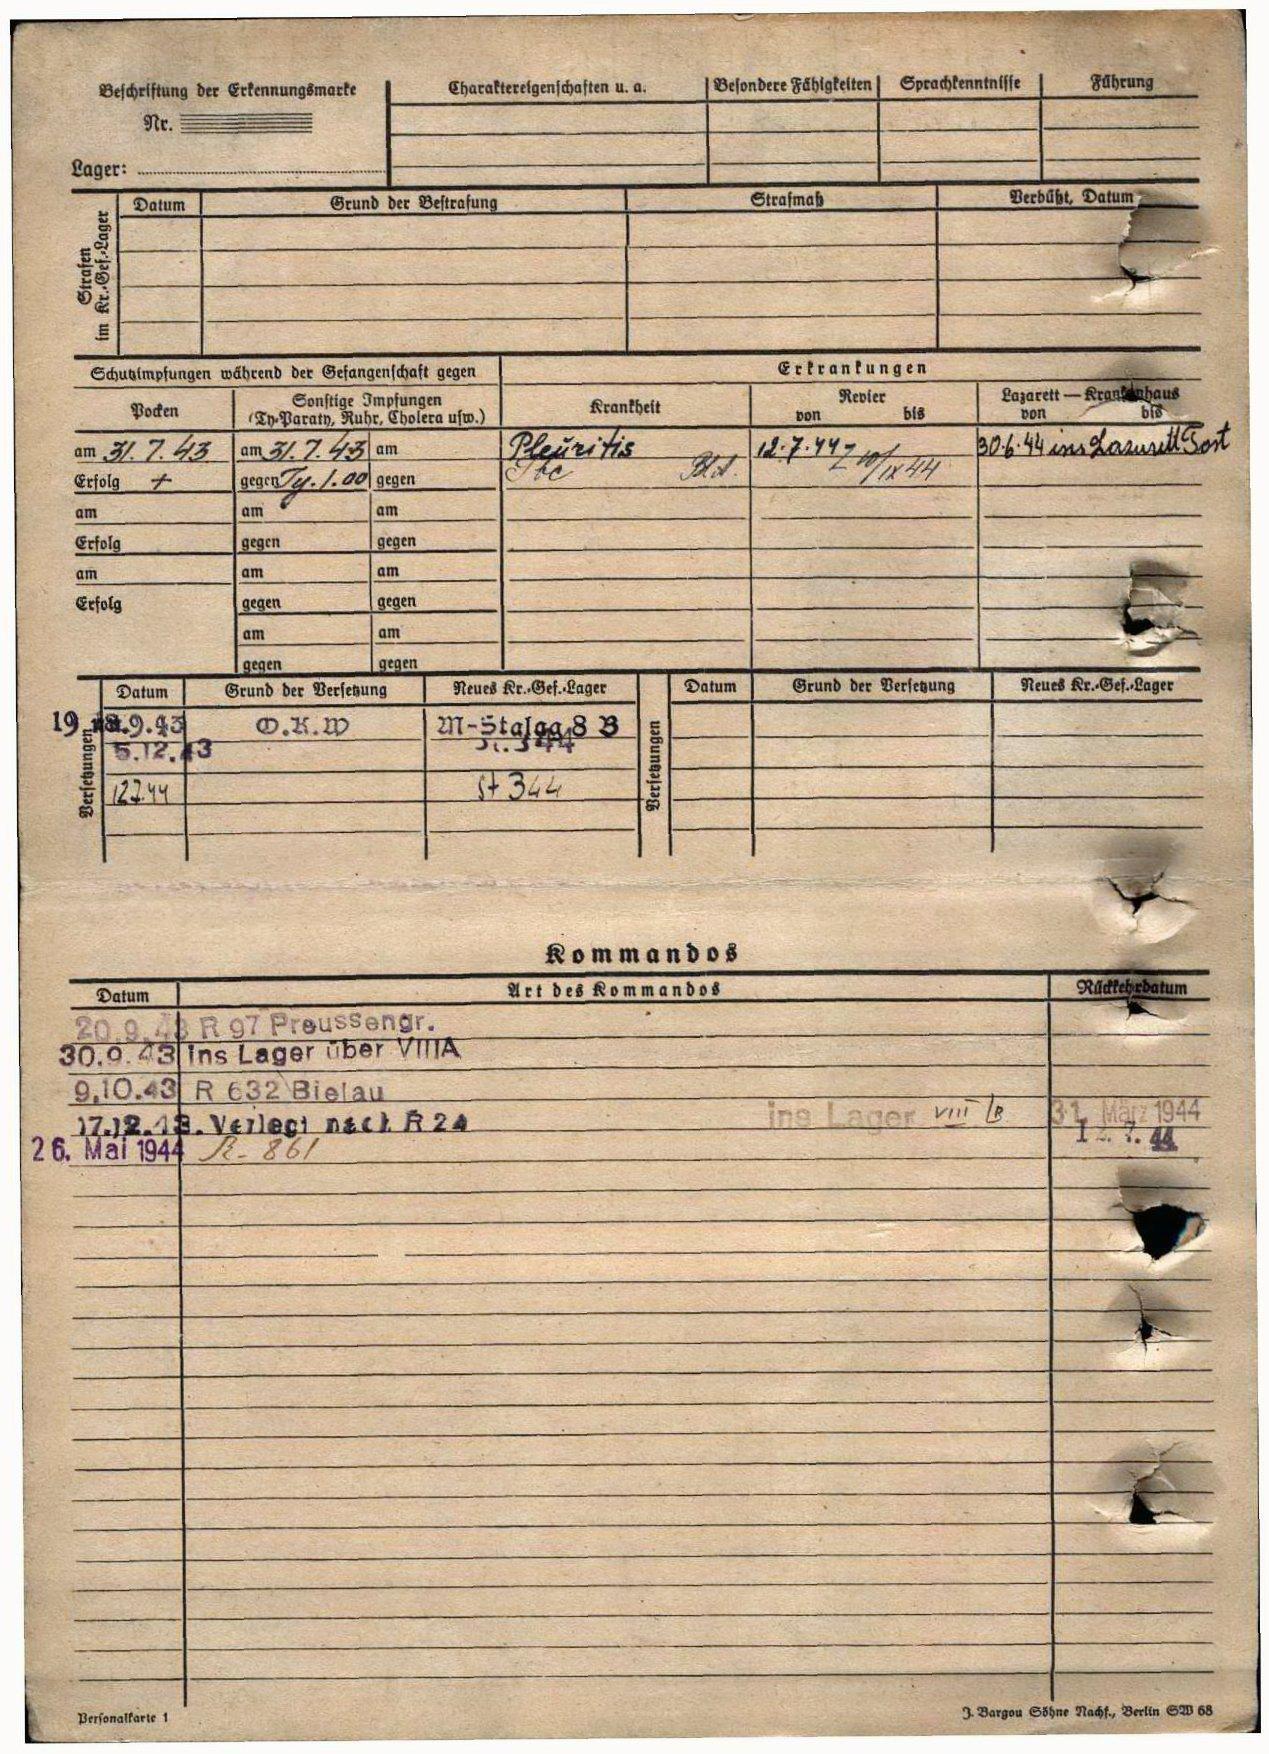 Beschriftung der Erkennungsmarke
Nr.
Lager:
Charaktereigenschaften u. a. Besondere Fähigkeiten Sprachkenntnisse Führung
Strafen im Kr.-Gef.-Lager
Datum Grund der Bestrafung Strafmaß Verbüßt, Datum
Schutzimpfungen während der Gefangenschaft gegen
Erkrankungen
Pocken
Sonstige Impfungen
(Ty.-Paraty, Ruhr, Cholera usw.)
Krankheit
Revier
von bis
Lazarett — Krankenhaus
von bis
am 31.7.43 am 31.7.43 am Pleuritis 12.7.44 30.6.44 ins Lazarett Tost
Erfolg + gegen Ty. 1.00 gegen Tbc 10/IX 44
am am am
Erfolg gegen gegen
am am am
Erfolg gegen gegen
am am
gegen gegen
Versetzungen
Datum Grund der Versetzung Neues Kr.-Gef.-Lager
Versetzungen
Datum Grund der Versetzung Neues Kr.-Gef.-Lager
.9.43 O.K.W M-Stalag 8 B
5.12.43 344
12.7.44 St 344
Kommandos
Datum Art des Kommandos Rückkehrdatum
20.9.43 R 97 Preussengr.
30.9.43 Ins Lager über VIIIA
9.10.43 R 632 Bielau
17.12.43. Verlegt nach R 24 ins Lager VIII B 31. März 1944
26. Mai 1944 R- 861 7. 44
Personalkarte 1
J. Bargou Söhne Nachf., Berlin SW 68